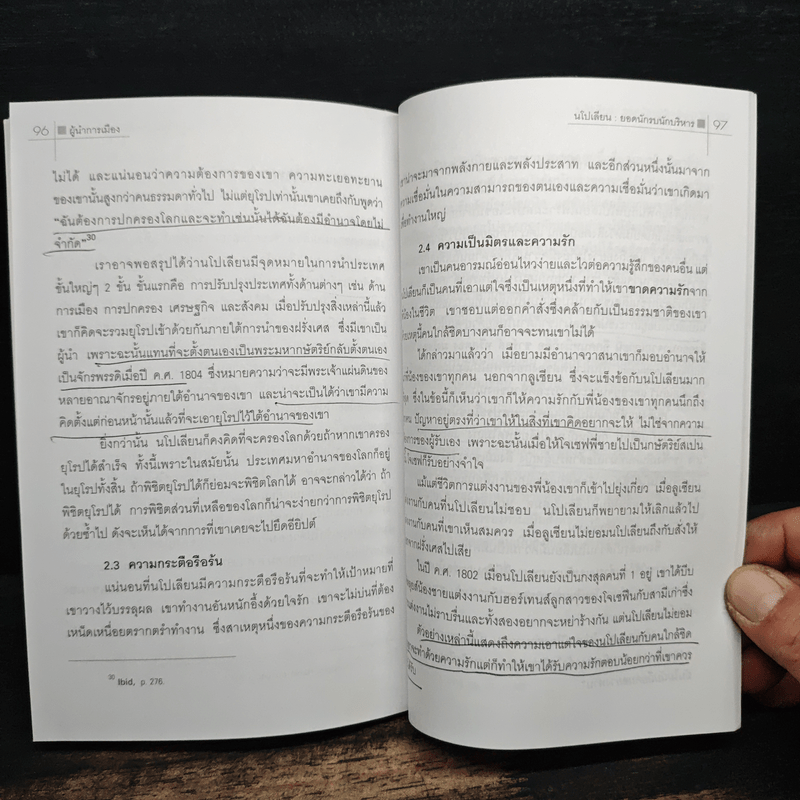 96 ผู้นำการเมือง
ไม่ได้ และแน่นอนว่าความต้องการของเขา ความทะเยอทะยาน
ของเขานั้นสูงกว่าคนธรรมดาทั่วไป ไม่แต่ยุโรปเท่านั้นเขาเคยถึงกับพูดว่า
"ฉันต้องการปกครองโลกและจะทำเช่นนั้นได้ฉันต้องมีอำนาจโดยไม่
จำกัด"30
เราอาจพอสรุปได้ว่านโปเลียนมีจุดหมายในการนำประเทศ
ขั้นใหญ่ๆ 2 ขั้น ขั้นแรกคือ การปรับปรุงประเทศทั้งด้านต่างๆ เช่น ด้าน
การเมือง การปกครอง เศรษฐกิจ และสังคม เมื่อปรับปรุงสิ่งเหล่านี้แล้ว
เขาก็คิดจะรวมยุโรปเข้าด้วยกันภายใต้การนำของฝรั่งเศส ซึ่งมีเขาเป็น
ผู้นำ เพราะฉะนั้นแทนที่จะตั้งตนเองเป็นพระมหากษัตริย์กลับตั้งตนเอง
เป็นจักรพรรดิเมื่อปี ค.ศ. 1804 ซึ่งหมายความว่าจะมีพระเจ้าแผ่นดินของ
หลายอาณาจักรอยู่ภายใต้อำนาจของเขา และน่าจะเป็นได้ว่าเขามีความ
คิดตั้งแต่ก่อนหน้านั้นแล้วที่จะเอายุโรปไว้ใต้อำนาจของเขา
ยิ่งกว่านั้น นโปเลียนก็คงคิดที่จะครองโลกด้วยถ้าหากเขาครอง
ยุโรปได้สำเร็จ ทั้งนี้เพราะในสมัยนั้น ประเทศมหาอำนาจของโลกก็อยู่
ในยุโรปทั้งสิ้น ถ้าพิชิตยุโรปได้ก็ย่อมจะพิชิตโลกได้ อาจจะกล่าวได้ว่า ถ้า
พิชิตยุโรปได้ การพิชิตส่วนที่เหลือของโลกก็น่าจะง่ายกว่าการพิชิตยุโรป
ด้วยซ้ำไป ดังจะเห็นได้จากการที่เขาเคยจะไปยึดอียิปต์
2.3 ความกระตือรือร้น
แน่นอนที่นโปเลียนมีความกระตือรือร้นที่จะทำให้เป้าหมายที่
เขาวางไว้บรรลุผล เขาทำงานอันหนักอึ้งด้วยใจรัก เขาจะไม่บ่นที่ต้อง
เหน็ดเหนื่อยตรากตรำทำงาน ซึ่งสาเหตุหนึ่งของความกระตือรือร้นของ
30 Ibid, p. 276.
นโปเลียน : ยอดนักรบนักบริหาร 97
น่าจะมาจากพลังกายและพลังประสาท และอีกส่วนหนึ่งนั้นมาจาก
ความเชื่อมั่นในความสามารถของตนเองและความเชื่อมั่นว่าเขาเกิดมา
ทำงานใหญ่
2.4 ความเป็นมิตรและความรัก
เขาเป็นคนอารมณ์อ่อนไหวง่ายและไวต่อความรู้สึกของคนอื่น แต่
นโปเลียนก็เป็นคนที่เอาแต่ใจซึ่งเป็นเหตุหนึ่งที่ทำให้เขาขาดความรักจาก
พี่น้องในชีวิต เขาชอบแต่ออกคำสั่งซึ่งคล้ายกับเป็นธรรมชาติของเขา
เหตุนี้คนใกล้ชิดบางคนก็อาจจะทนเขาไม่ได้
ได้กล่าวมาแล้วว่า เมื่อยามมีอำนาจวาสนาเขาก็มอบอำนาจให้
พี่น้องของเขาทุกคน นอกจากลูเซียน ซึ่งจะแข็งข้อกับนโปเลียนมาก
ซึ่งในข้อนี้ก็เห็นว่าเขาก็ให้ความรักกับพี่น้องของเขาทุกคนนึกถึง
ปัญหาอยู่ตรงที่ว่าเขาให้ในสิ่งที่เขาคิดอยากจะให้ ไม่ใช่จากความ
ต้องการของผู้รับเอง เพราะฉะนั้นเมื่อให้โจเซฟพี่ชายไปเป็นกษัตริย์สเปน
โจเซฟก็รับอย่างจำใจ
แม้แต่ชีวิตการแต่งงานของพี่น้องเขาก็เข้าไปยุ่งเกี่ยว เมื่อลูเซียน
งานกับคนที่นโปเลียนไม่ชอบ นโปเลียนก็พยายามให้เลิกแล้วไป
งานกับคนที่เขาเห็นสมควร เมื่อลูเซียนไม่ยอมนโปเลียนถึงกับสั่งให้
จากฝรั่งเศสไปเสีย
ในปี ค.ศ. 1802 เมื่อนโปเลียนยังเป็นกงสุลคนที่ 1 อยู่ เขาได้บีบ
น้องชายแต่งงานกับฮอร์เทนส์ลูกสาวของโจเซฟีนกับสามีเก่าซึ่ง
งานไม่ราบรื่นและทั้งสองอยากจะหย่าร้างกัน แต่นโปเลียนไม่ยอม
ตัวอย่างเหล่านี้แสดงถึงความเอาแต่ใจของนโปเลียนกับคนใกล้ชิด
จะทำด้วยความรักแต่ก็ทำให้เขาได้รับความรักตอบน้อยกว่าที่เขาควร